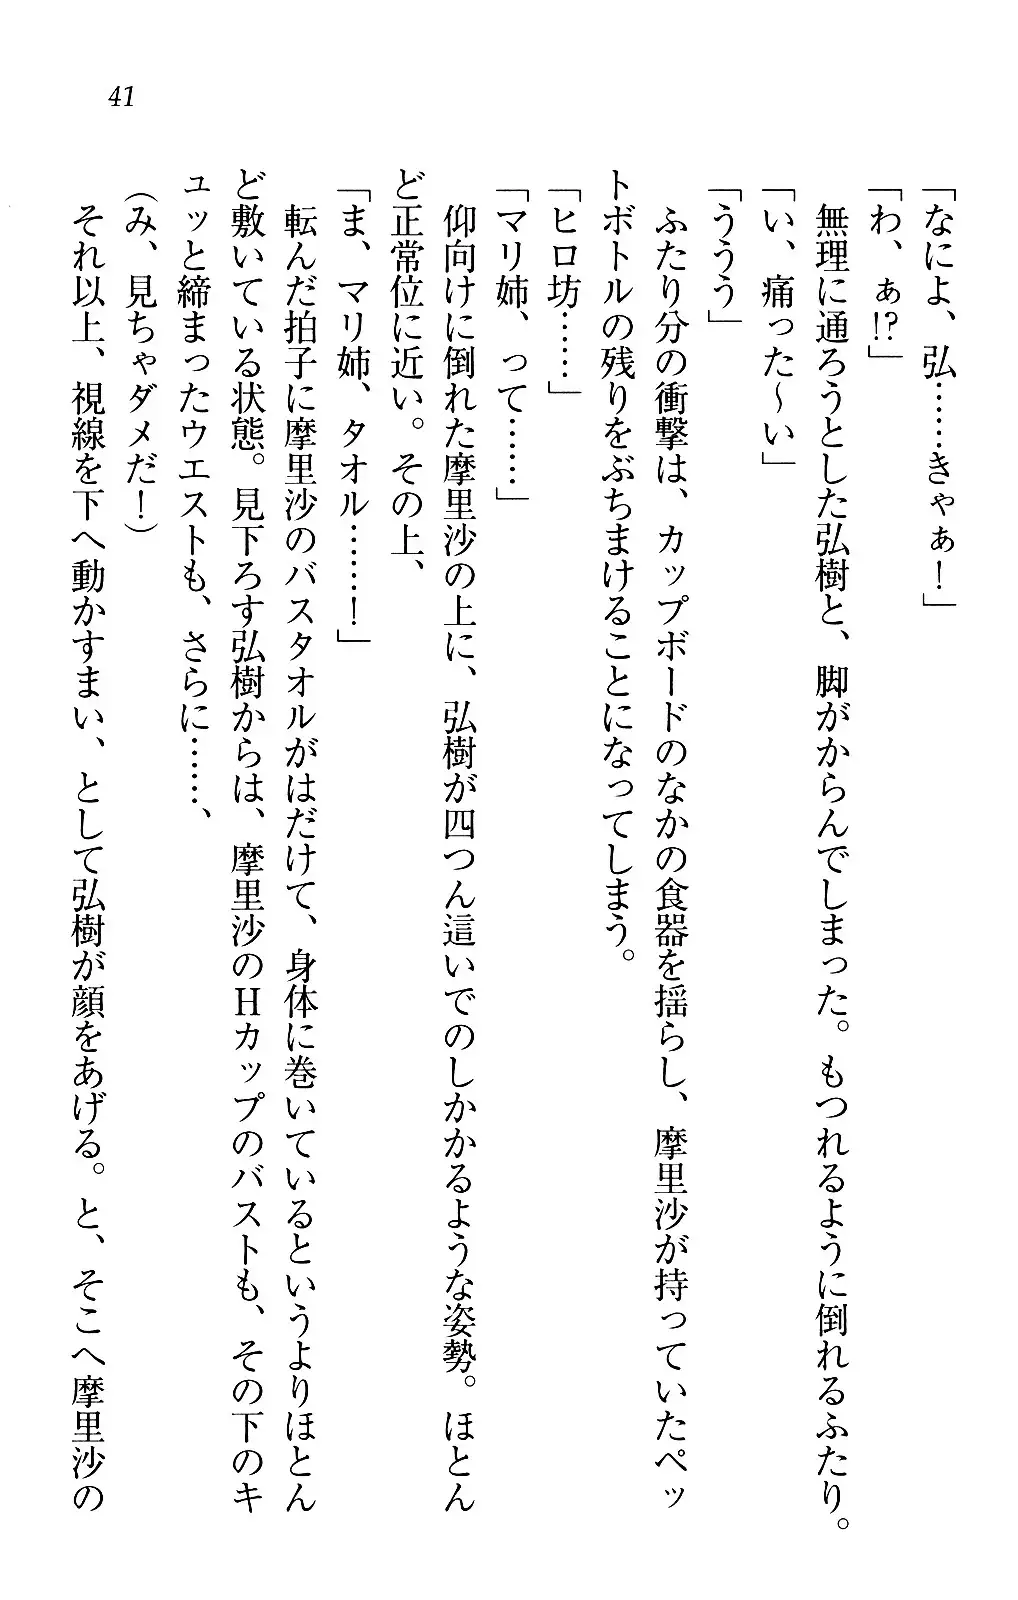 41
「なによ、弘……きゃぁ！」
「わ、ぁ!?」
無理に通ろうとした弘樹と、脚がからんでしまった。もつれるように倒れるふたり。
「い、痛った～い」
「ううう」
ふたり分の衝撃は、カップボードのなかの食器を揺らし、摩里沙が持っていたペッ
トボトルの残りをぶちまけることになってしまう。
「ヒロ坊……」
「マリ姉、って……」
仰向けに倒れた摩里沙の上に、弘樹が四つん這いでのしかかるような姿勢。ほとん
ど正常位に近い。その上、
「ま、マリ姉、タオル……！」
転んだ拍子に摩里沙のバスタオルがはだけて、身体に巻いているというよりほとん
ど敷いている状態。見下ろす弘樹からは、摩里沙のHカップのバストも、その下のキ
ュッと締まったウエストも、さらに……、
（み、見ちゃダメだ！）
それ以上、視線を下へ動かすまい、として弘樹が顔をあげる。と、そこへ摩里沙の